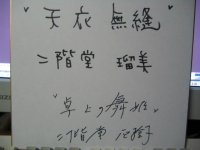 "天衣無縫"
二階堂 瑠美
"卓上の舞姫"
二階堂 亜樹